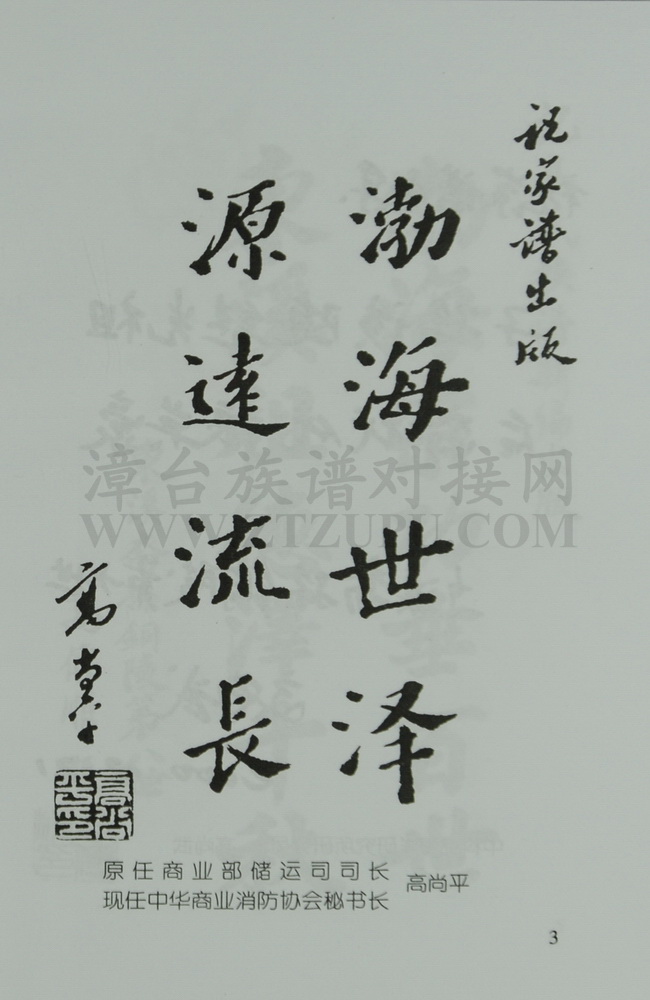 祝家谱出版
渤海世泽
源達流長
高尚平
高尚平印
原任商业部储运司司长
现任中华商业消防协会秘书长
高尚平
漳台族谱对接网
WWW.ZTZUPU.COM
3